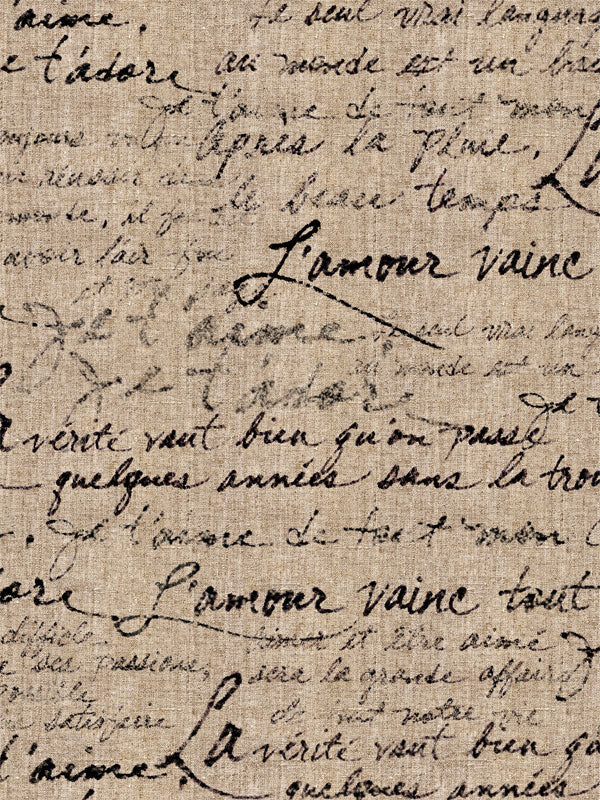 aime.
Le seul vrai langag
t'adore
au monde est un bais
Je t'aime de tout mon
après la pluie,
le beau temps
avoir l'air
L'amour vainc
et
Je t'aime
Le seul vrai lang
au monde est un
Je t'adore
Je t
vérité vaut bien qu'on passe
quelques années sans la trou
Je t'aime de tout mon
adore
L'amour vainc tout
difficile
aimer et être aimé
ses passions,
sera la grande affaire
possible
de tout notre vie
satisfaire
La vérité vaut bien qu
t'aime
quelques années